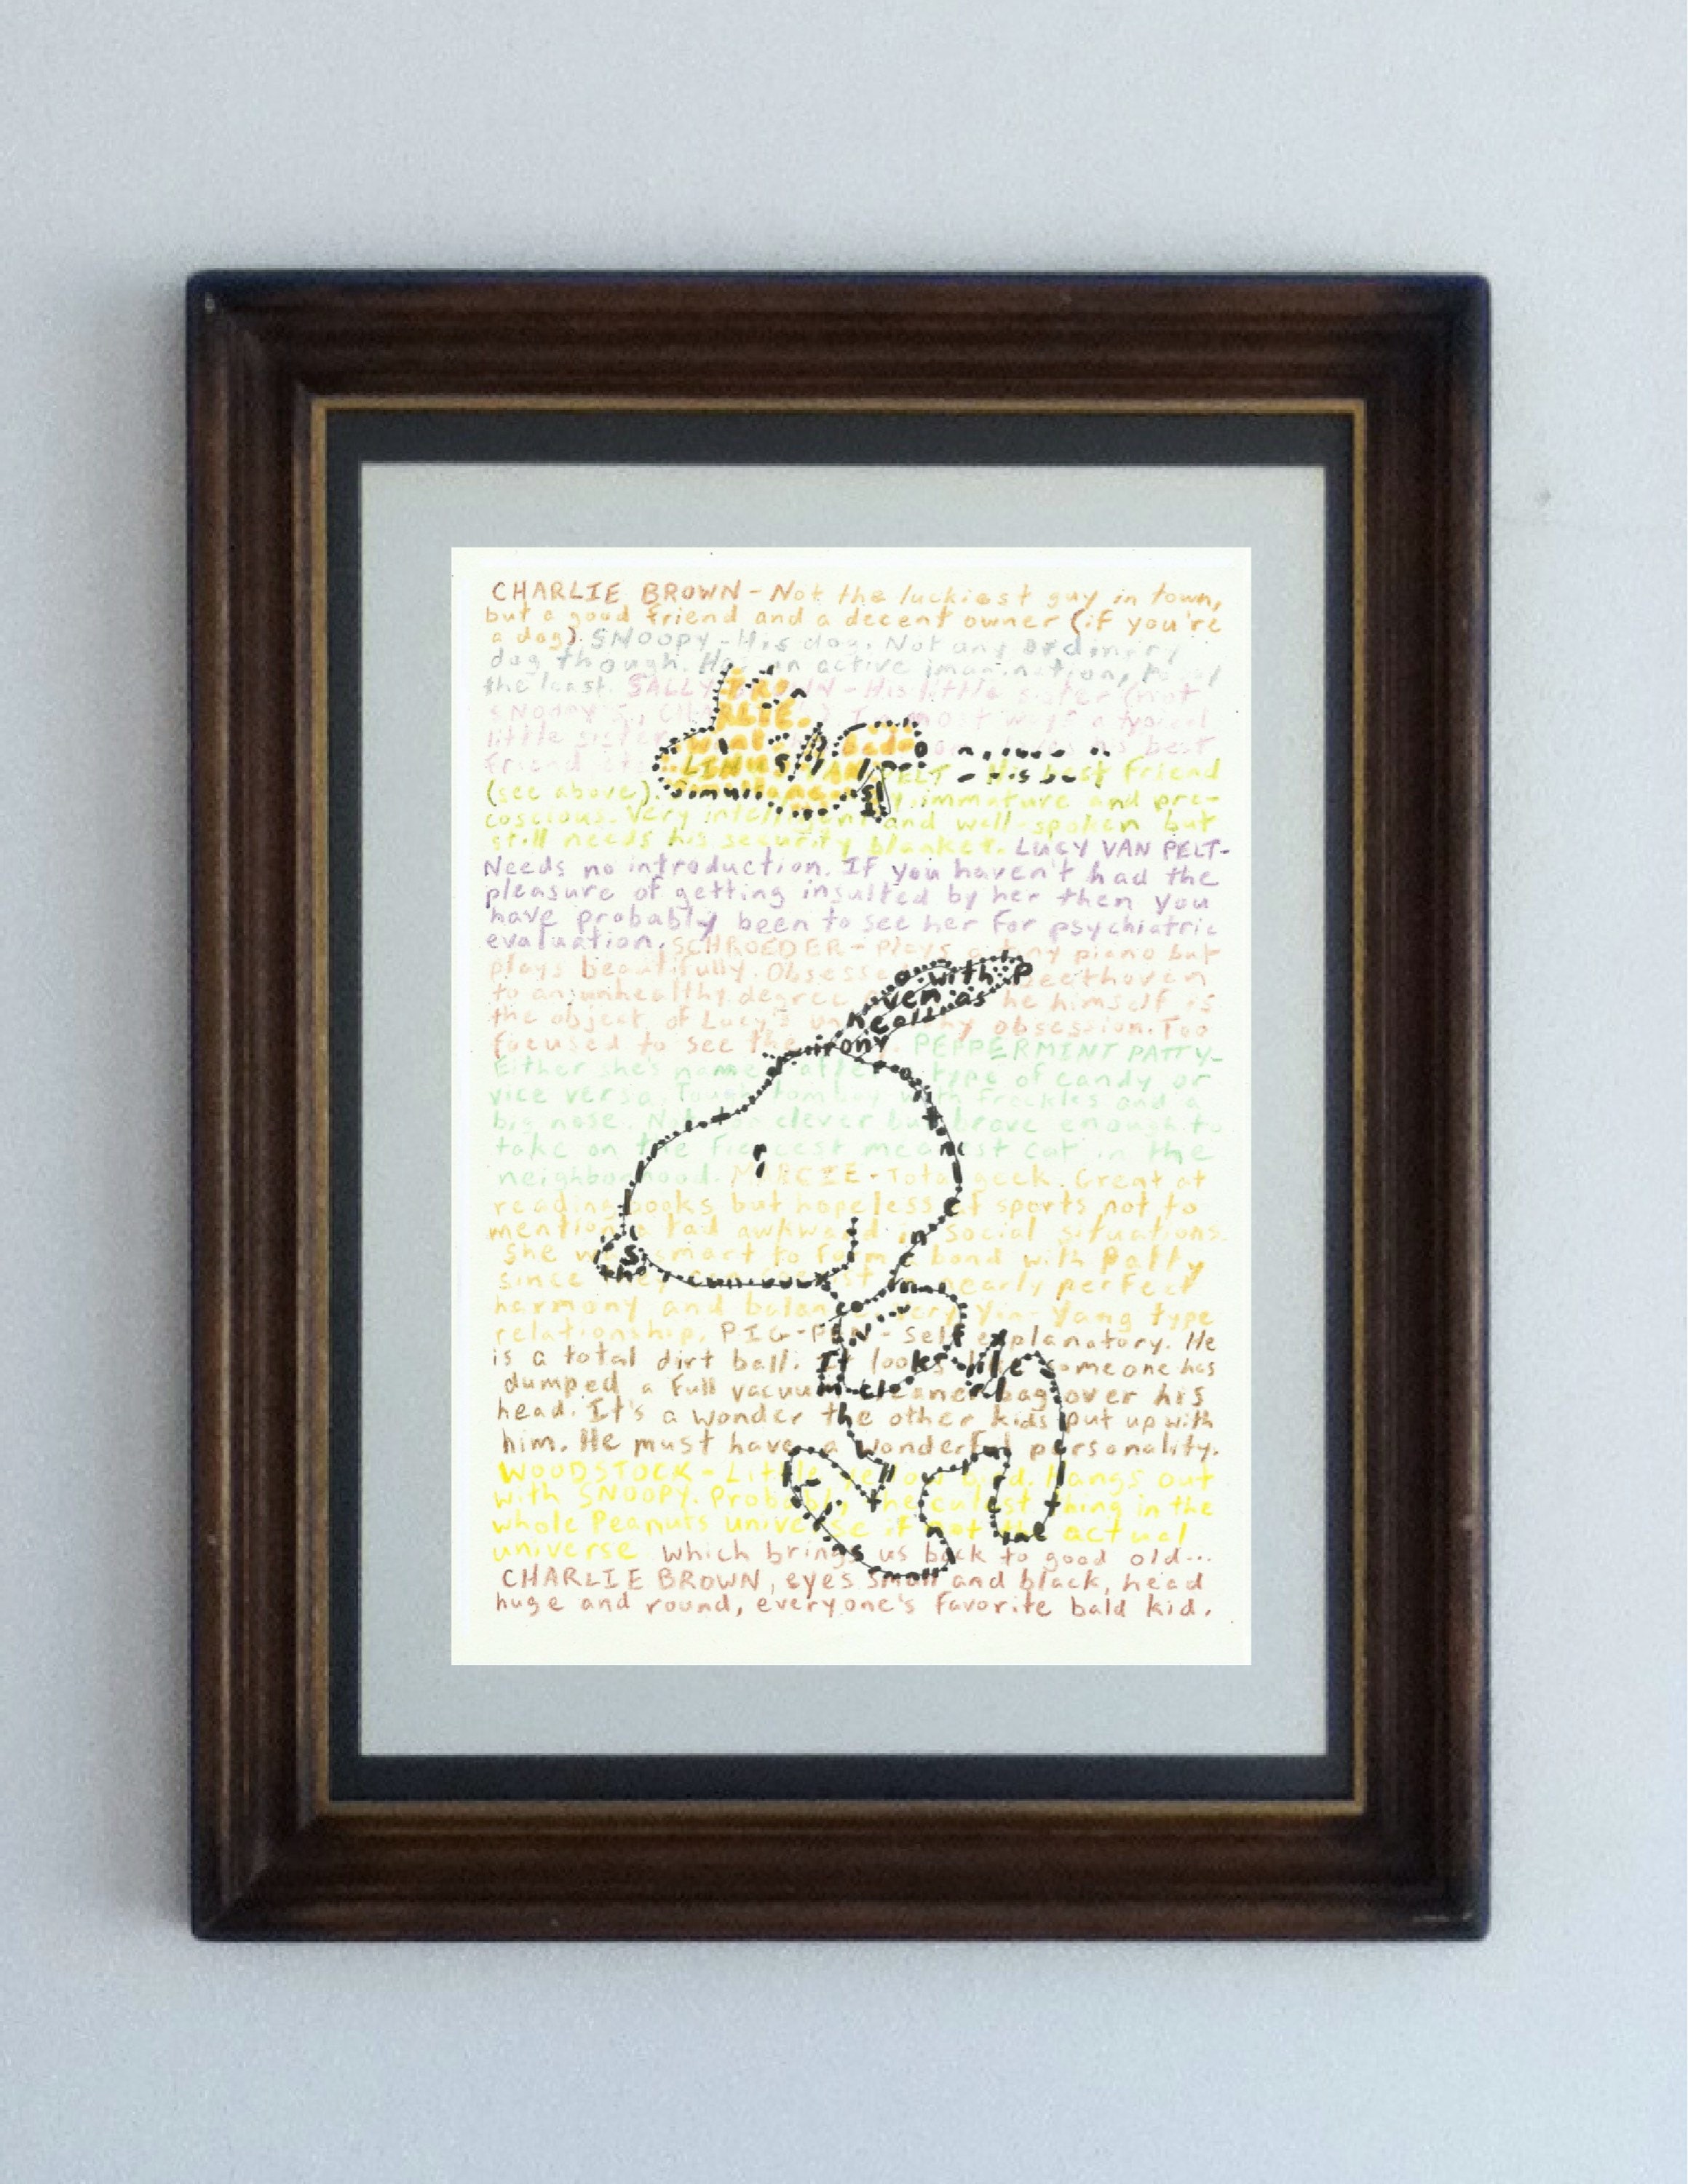 CHARLIE BROWN - Not the luckiest guy in town,
but a good friend and a decent owner (if you're
a dog). SNOOPY - His dog. Not any ordinary
dog though. Has an active imagination, to say
the least. SALLY BROWN - His little sister (not
SNOOPY'S, CHARLIE.) In most ways a typical
little sister best
friend
LINUS VAN PELT - His best friend
(see above). immature and pre-
coscious. Very intelligent and well-spoken but
still needs his security blanket. LUCY VAN PELT-
Needs no introduction. If you haven't had the
pleasure of getting insulted by her then you
have probably been to see her for psychiatric
evaluation. SCHROEDER - Plays a tiny piano but
plays beautifully. Obsessed with Beethoven
to an unhealthy degree even as he himself is
the object of Lucy's unhealthy obsession. Too
focused to see the irony. PEPPERMINT PATTY-
Either she's named after a type of candy or
vice versa. Tough tomboy with freckles and a
big nose. Not too clever but brave enough to
take on the fiercest meanest cat in the
neighborhood. MARCIE - Total geek. Great at
reading books but hopeless at sports not to
mention a tad awkward in social situations.
She was smart to form a bond with Patty
since they can coexist in nearly perfect
harmony and balance. Very Yin-Yang type
relationship. PIG-PEN - Self explanatory. He
is a total dirt ball. It looks like someone has
dumped a full vacuum cleaner bag over his
head. It's a wonder the other kids put up with
him. He must have a wonderful personality.
WOODSTOCK - Little yellow bird. Hangs out
with SNOOPY. Probably the cutest thing in the
whole Peanuts universe if not the actual
universe which brings us back to good old...
CHARLIE BROWN, eyes small and black, head
huge and round, everyone's favorite bald kid.